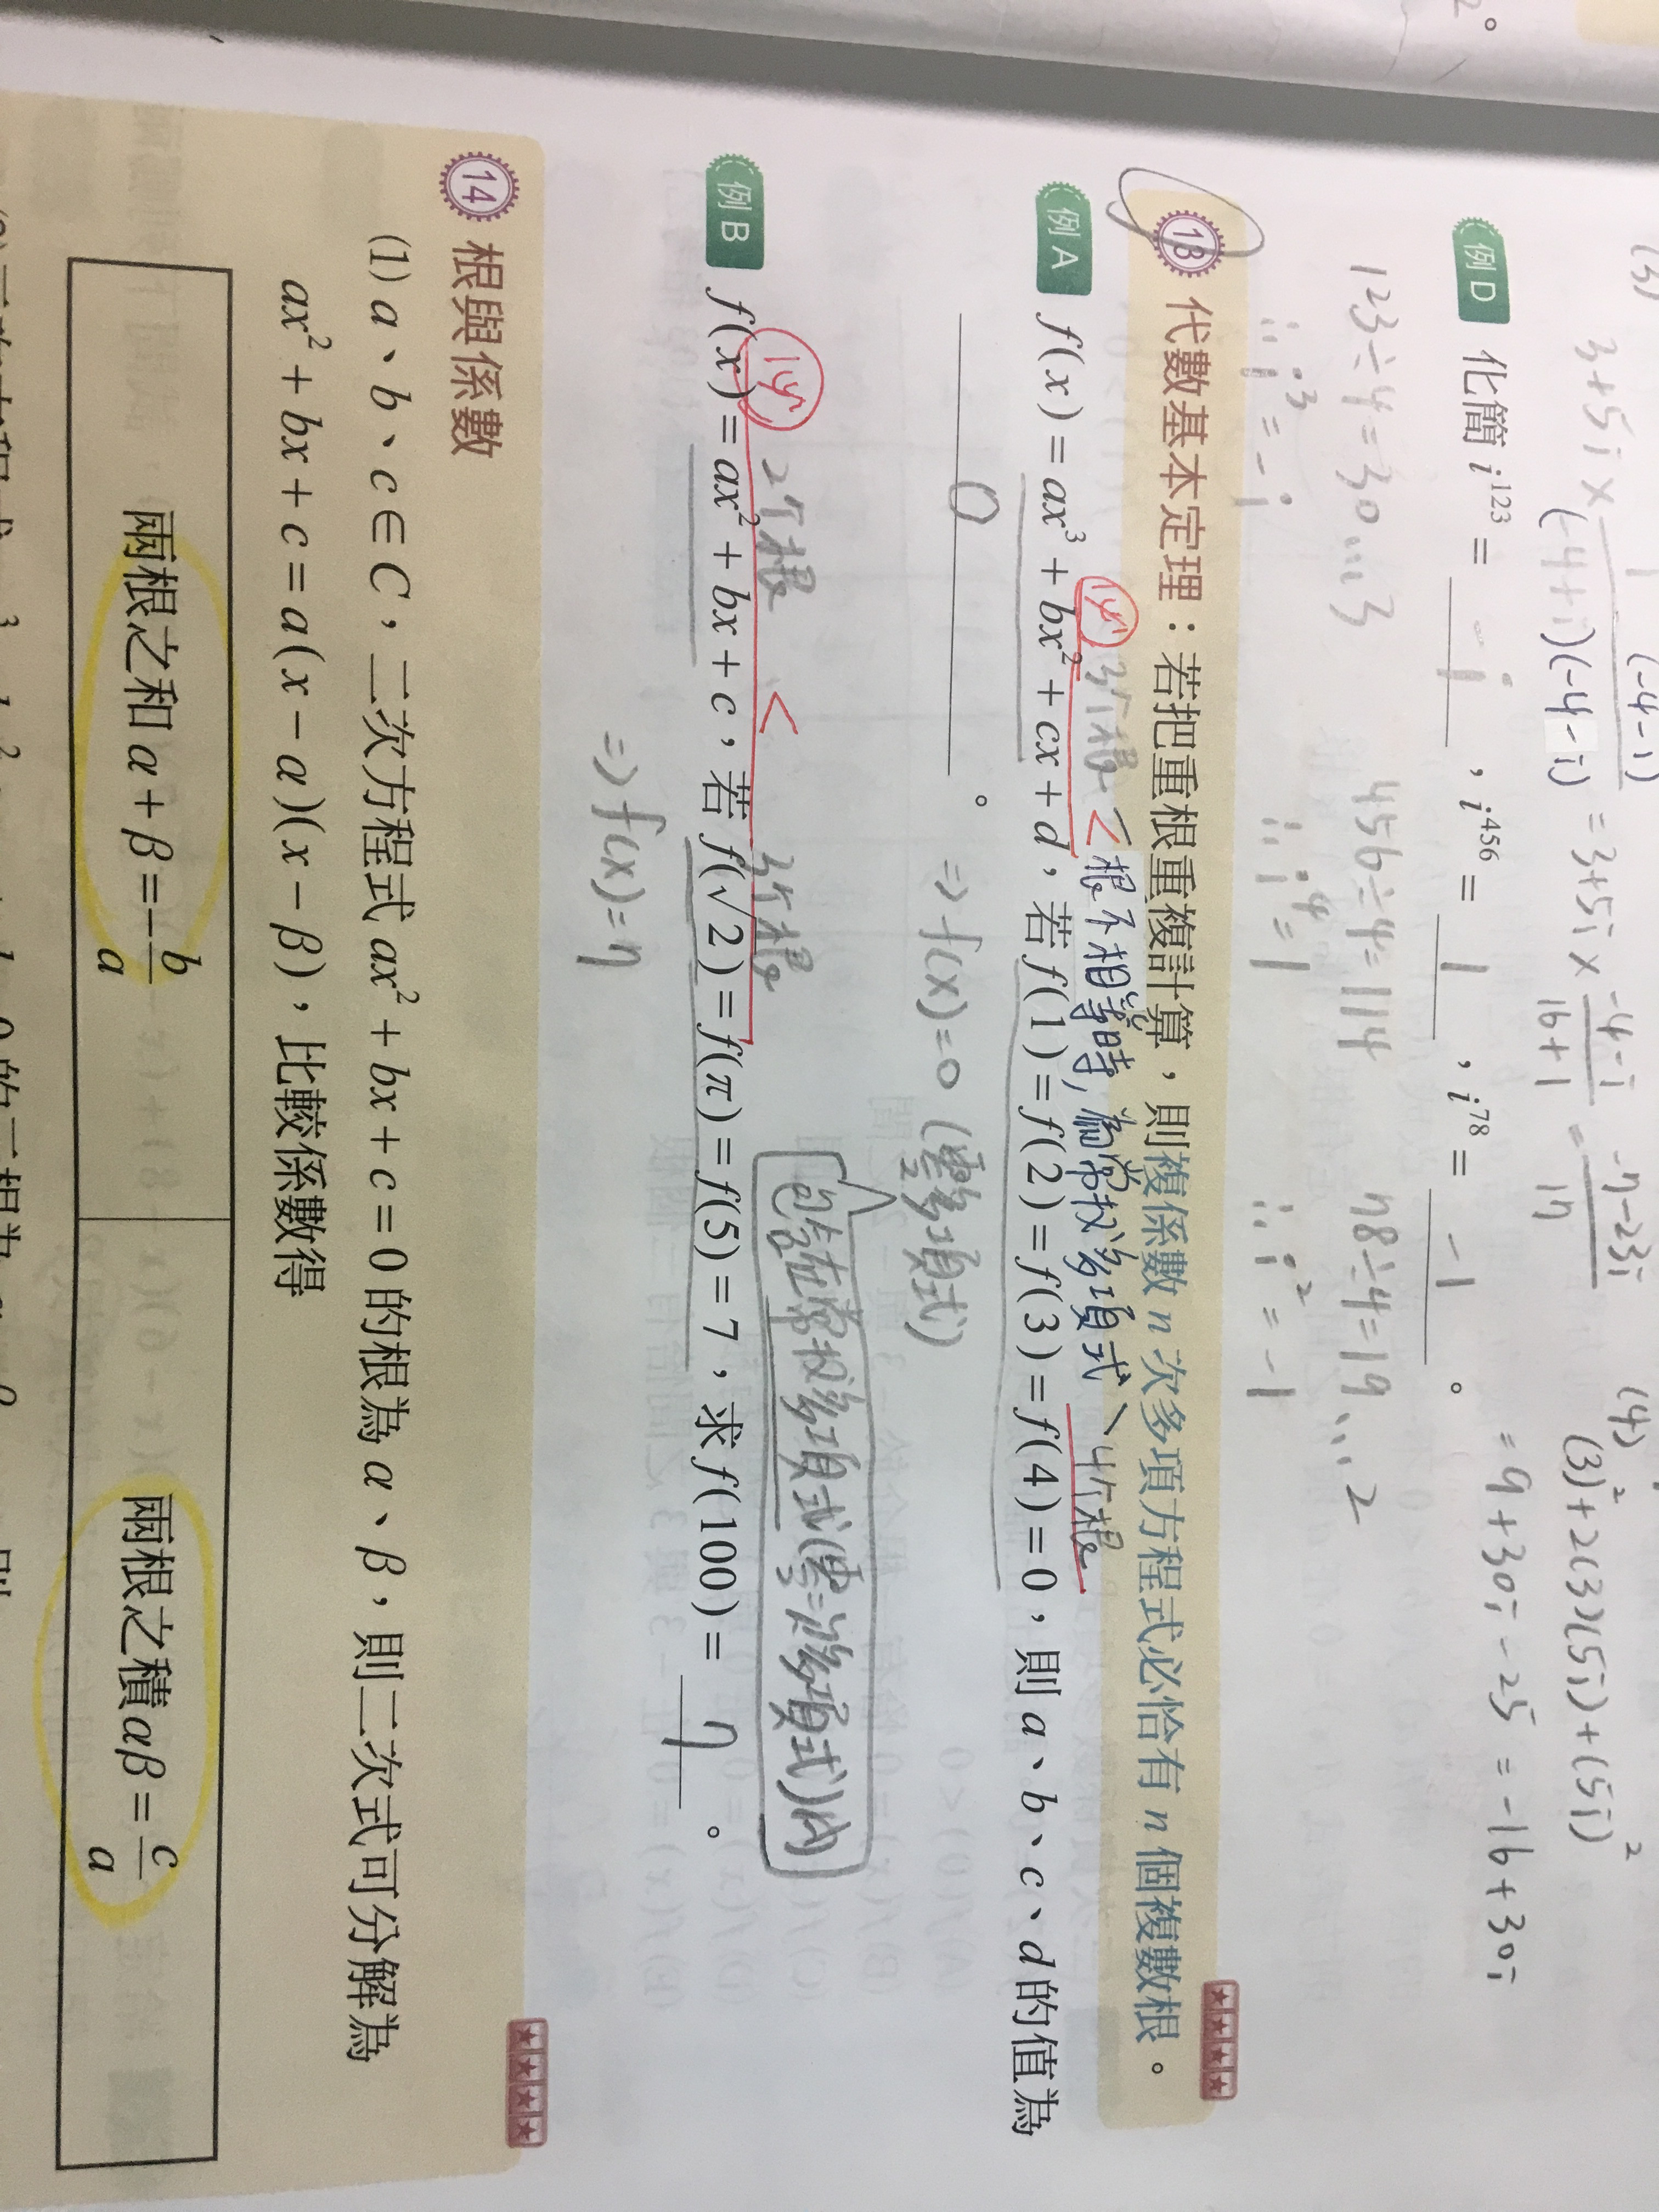 2。
(3)
3+5i × 1/(-4-i)
(-4+i)(-4-i)
= 3+5i × (-4-i)/(16+1) = (-7-23i)/17
(4)
(3)²+2(3)(5i)+(5i)²
= 9+30i-25 = -16+30i
例D 化簡 i¹²³ = -i ,i⁴⁵⁶ = 1 ,i⁷⁸ = -1 。
123÷4=30...3 456÷4=114 78÷4=19...2
∴i³=-i ∴i⁴=1 ∴i²=-1
13 代數基本定理:若把重根重複計算,則複係數 n 次多項方程式必恰有 n 個複數根。
3個根 < 根不相等時,為常數多項式、4個根
例A f(x)=ax³+bx²+cx+d,若 f(1)=f(2)=f(3)=f(4)=0,則 a、b、c、d 的值為
0 。
⇒ f(x)=0 (零多項式)
包括常數多項式(零多項式)內
2個根 < 3個根
例B f(x)=ax²+bx+c,若 f(√2)=f(π)=f(5)=7,求 f(100)= 7 。
⇒ f(x)=7
14 根與係數
(1) a、b、c∈C,二次方程式 ax²+bx+c=0 的根為 α、β,則二次式可分解為
ax²+bx+c=a(x-α)(x-β),比較係數得
兩根之和 α+β=-b/a
兩根之積 αβ=c/a